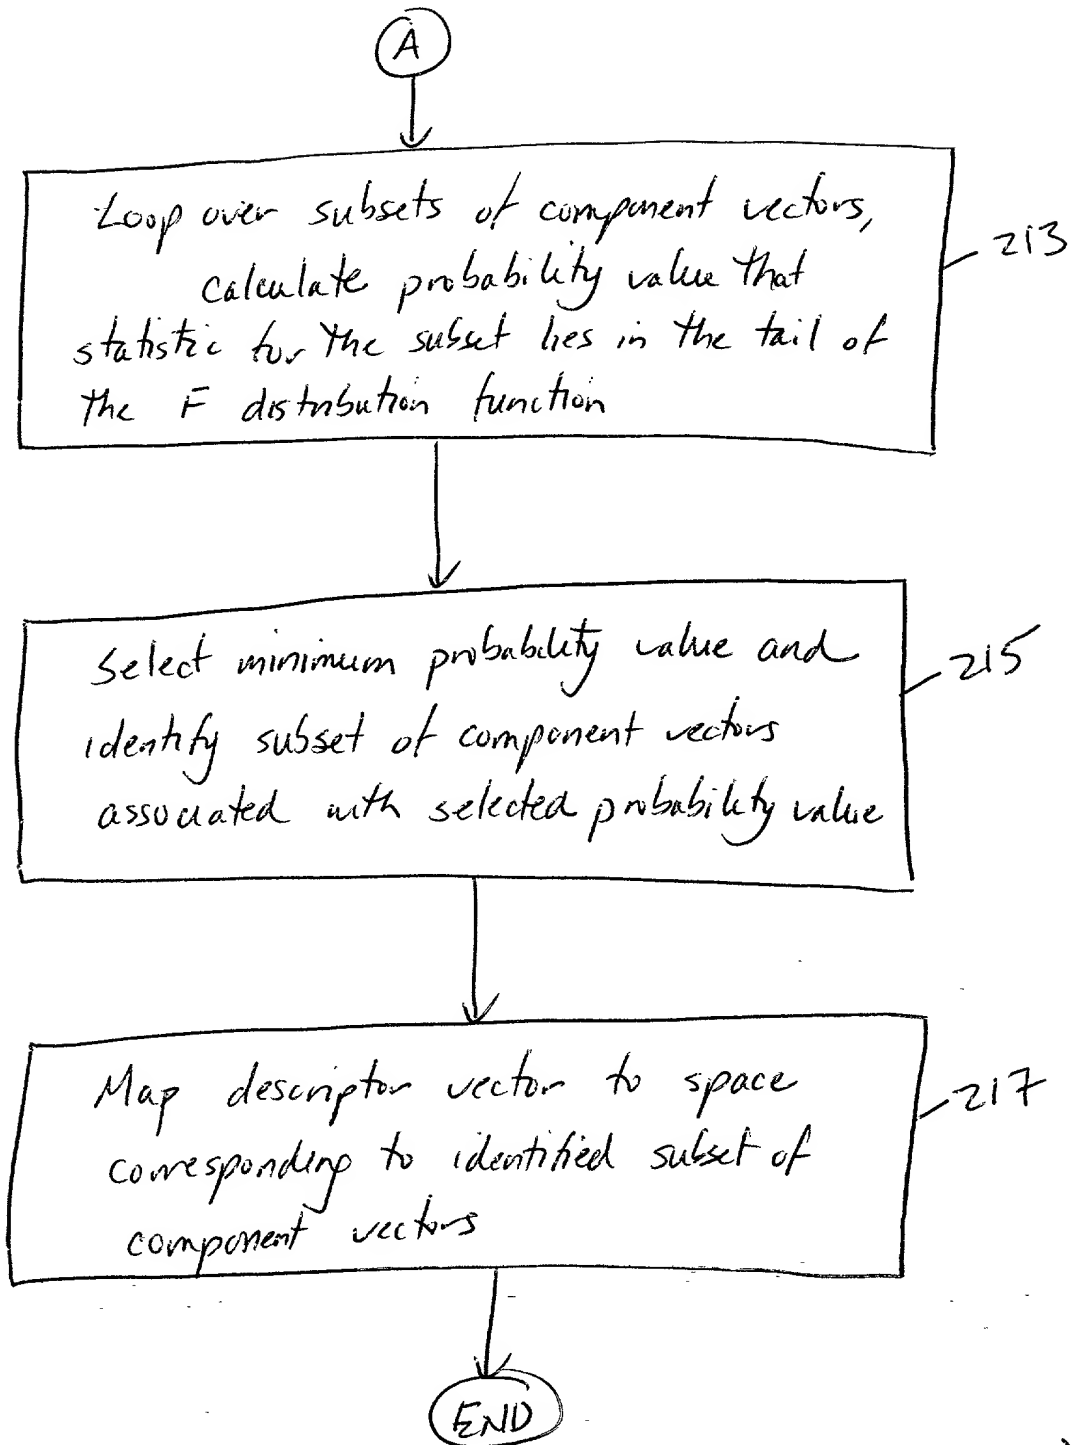 A
Loop over subsets of component vectors,
calculate probability value that
statistic for the subset lies in the tail of
the F distribution function
213
Select minimum probability value and
identify subset of component vectors
associated with selected probability value
215
Map descriptor vector to space
corresponding to identified subset of
component vectors
217
END